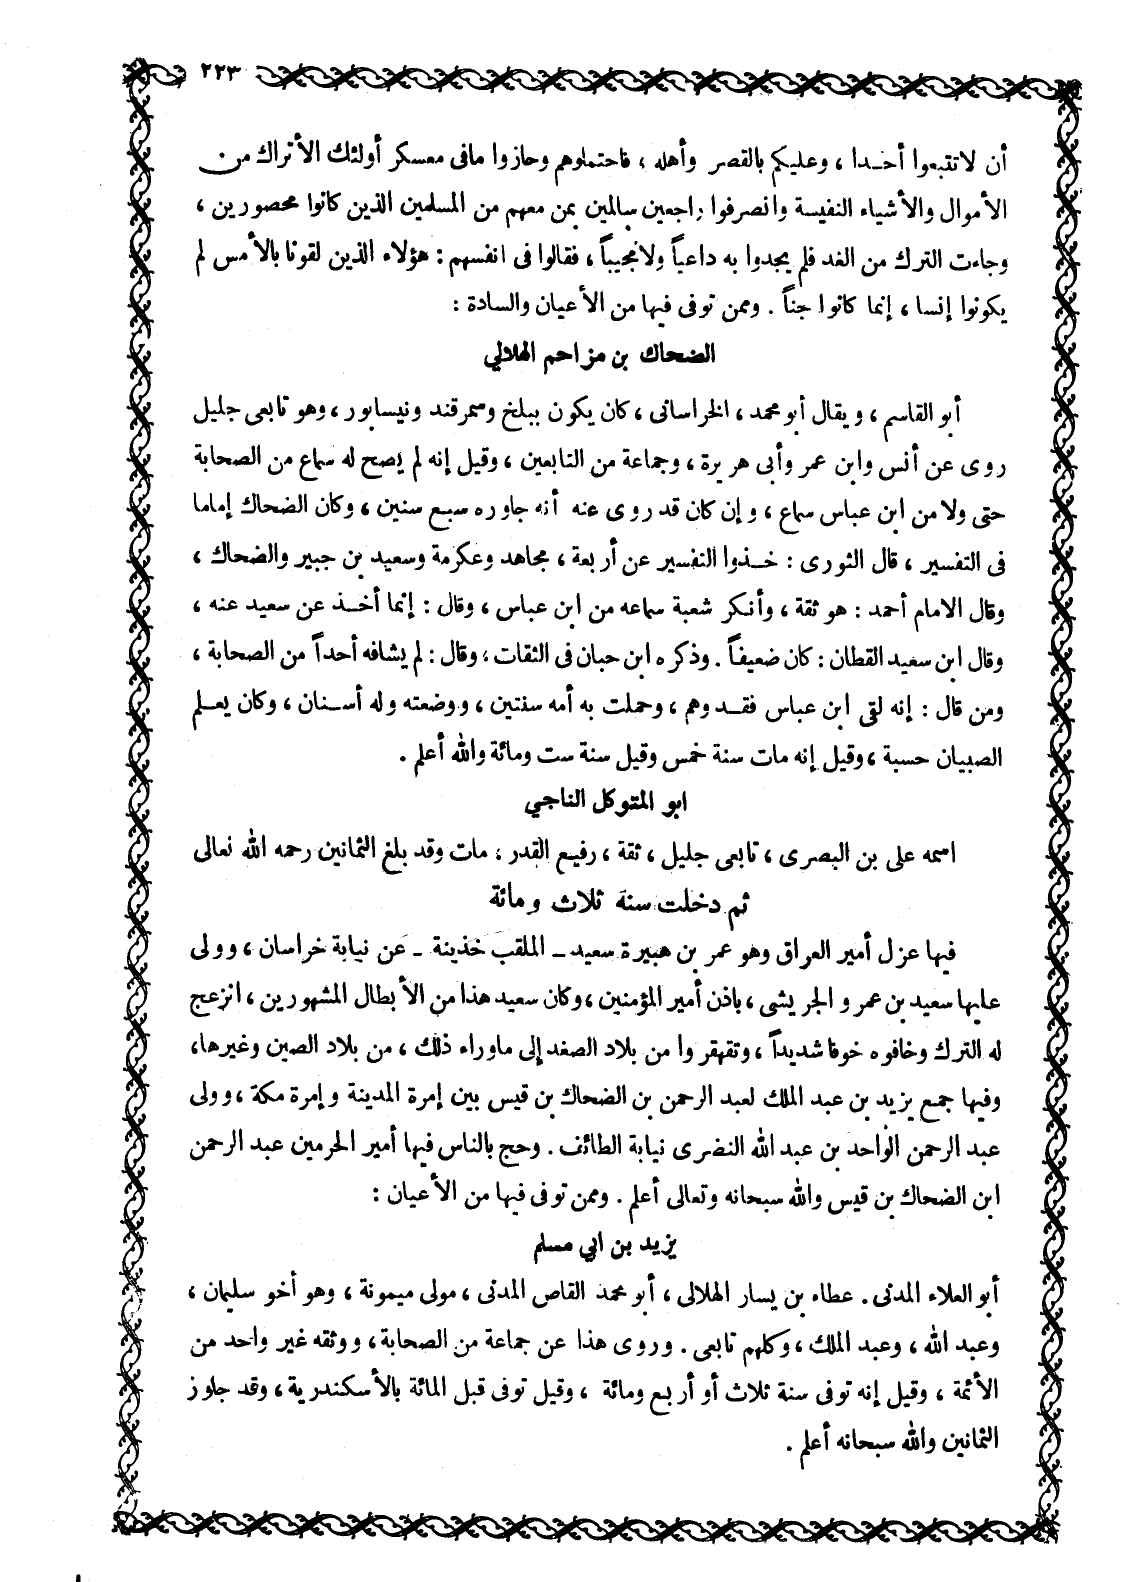 ٢٢٣
أن لا تتبعوا أحدا ، وعليكم بالقصر وأهله ، فاحتملوهم وحازوا مافى معسكر أولئك الأتراك من
الأموال والأشياء النفيسة وانصرفوا راجعين سالمين بمن معهم من المسلمين الذين كانوا محصورين ،
وجاءت الترك من الغد فلم يجدوا به داعياً ولا مجيباً ، فقالوا فى انفسهم : هؤلاء الذين لقونا بالأمس لم
يكونوا إنسا ، إنما كانوا جناً . وممن توفى فيها من الأعيان والسادة :
الضحاك بن مزاحم الهلالي
أبو القاسم ، ويقال أبو محمد ، الخراسانى ، كان يكون ببلخ وسمرقند ونيسابور ، وهو تابعى جليل
روى عن أنس وابن عمر وأبى هريرة ، وجماعة من التابعين ، وقيل إنه لم يصح له سماع من الصحابة
حتى ولا من ابن عباس سماع ، وإن كان قد روى عنه أنه جاوره سبع سنين ، وكان الضحاك إماما
فى التفسير ، قال الثورى : خذوا التفسير عن أربعة ، مجاهد وعكرمة وسعيد بن جبير والضحاك ،
وقال الامام أحمد : هو ثقة ، وأنكر شعبة سماعه من ابن عباس ، وقال : إنما أخذ عن سعيد عنه ،
وقال ابن سعيد القطان : كان ضعيفاً . وذكره ابن حبان فى الثقات ، وقال : لم يشافه أحداً من الصحابة ،
ومن قال : إنه لقى ابن عباس فقد وهم ، وحملت به أمه سنتين ، ووضعته وله أسنان ، وكان يعلم
الصبيان حسبة ، وقيل إنه مات سنة خمس وقيل سنة ست ومائة والله أعلم .
ابو المتوكل الناجي
اسمه على بن البصرى ، تابعى جليل ، ثقة ، رفيع القدر ، مات وقد بلغ الثمانين رحمه الله تعالى
ثم دخلت سنة ثلاث ومائة
فيها عزل أمير العراق وهو عمر بن هبيرة سعيد - الملقب خذينة - عن نيابة خراسان ، وولى
عليها سعيد بن عمرو الجريشى ، باذن أمير المؤمنين ، وكان سعيد هذا من الأبطال المشهورين ، انزعج
له الترك وخافوه خوفا شديداً ، وتقهقروا من بلاد الصغد إلى ماوراء ذلك ، من بلاد الصين وغيرها ،
وفيها جمع يزيد بن عبد الملك لعبد الرحمن بن الضحاك بن قيس بين إمرة المدينة وإمرة مكة ، وولى
عبد الرحمن الواحد بن عبد الله النضرى نيابة الطائف . وحج بالناس فيها أمير الحرمين عبد الرحمن
ابن الضحاك بن قيس والله سبحانه وتعالى أعلم . وممن توفى فيها من الأعيان :
يزيد بن ابي مسلم
أبو العلاء المدنى . عطاء بن يسار الهلالى ، أبو محمد القاص المدنى ، مولى ميمونة ، وهو أخو سليمان ،
وعبد الله ، وعبد الملك ، وكلهم تابعى . وروى هذا عن جماعة من الصحابة ، ووثقه غير واحد من
الأئمة ، وقيل إنه توفى سنة ثلاث أو أربع ومائة ، وقيل توفى قبل المائة بالأسكندرية ، وقد جاوز
الثمانين والله سبحانه أعلم .